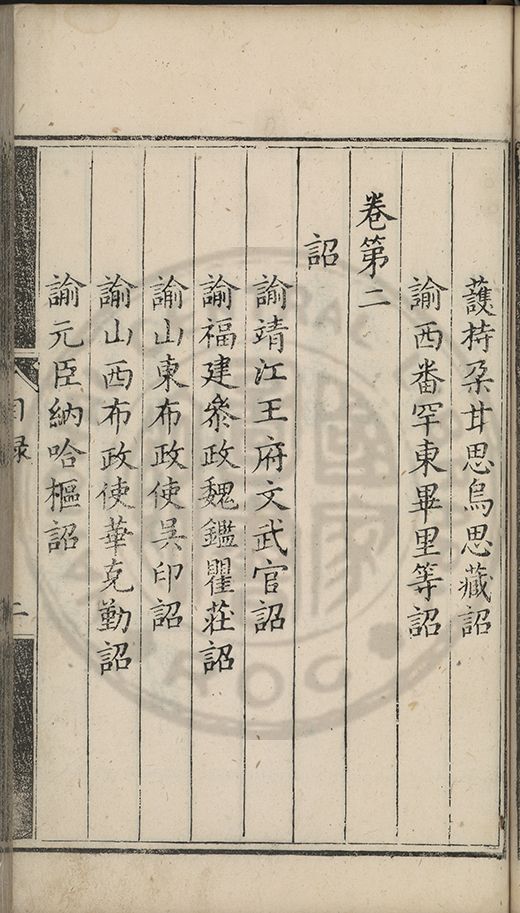 護持朶甘思烏思藏詔
諭西番罕東畢里等詔
卷第二
詔
諭靖江王府文武官詔
諭福建叅政魏鑑瞿莊詔
諭山東布政使吳印詔
諭山西布政使華克勤詔
諭元臣納哈樞詔
目録
二